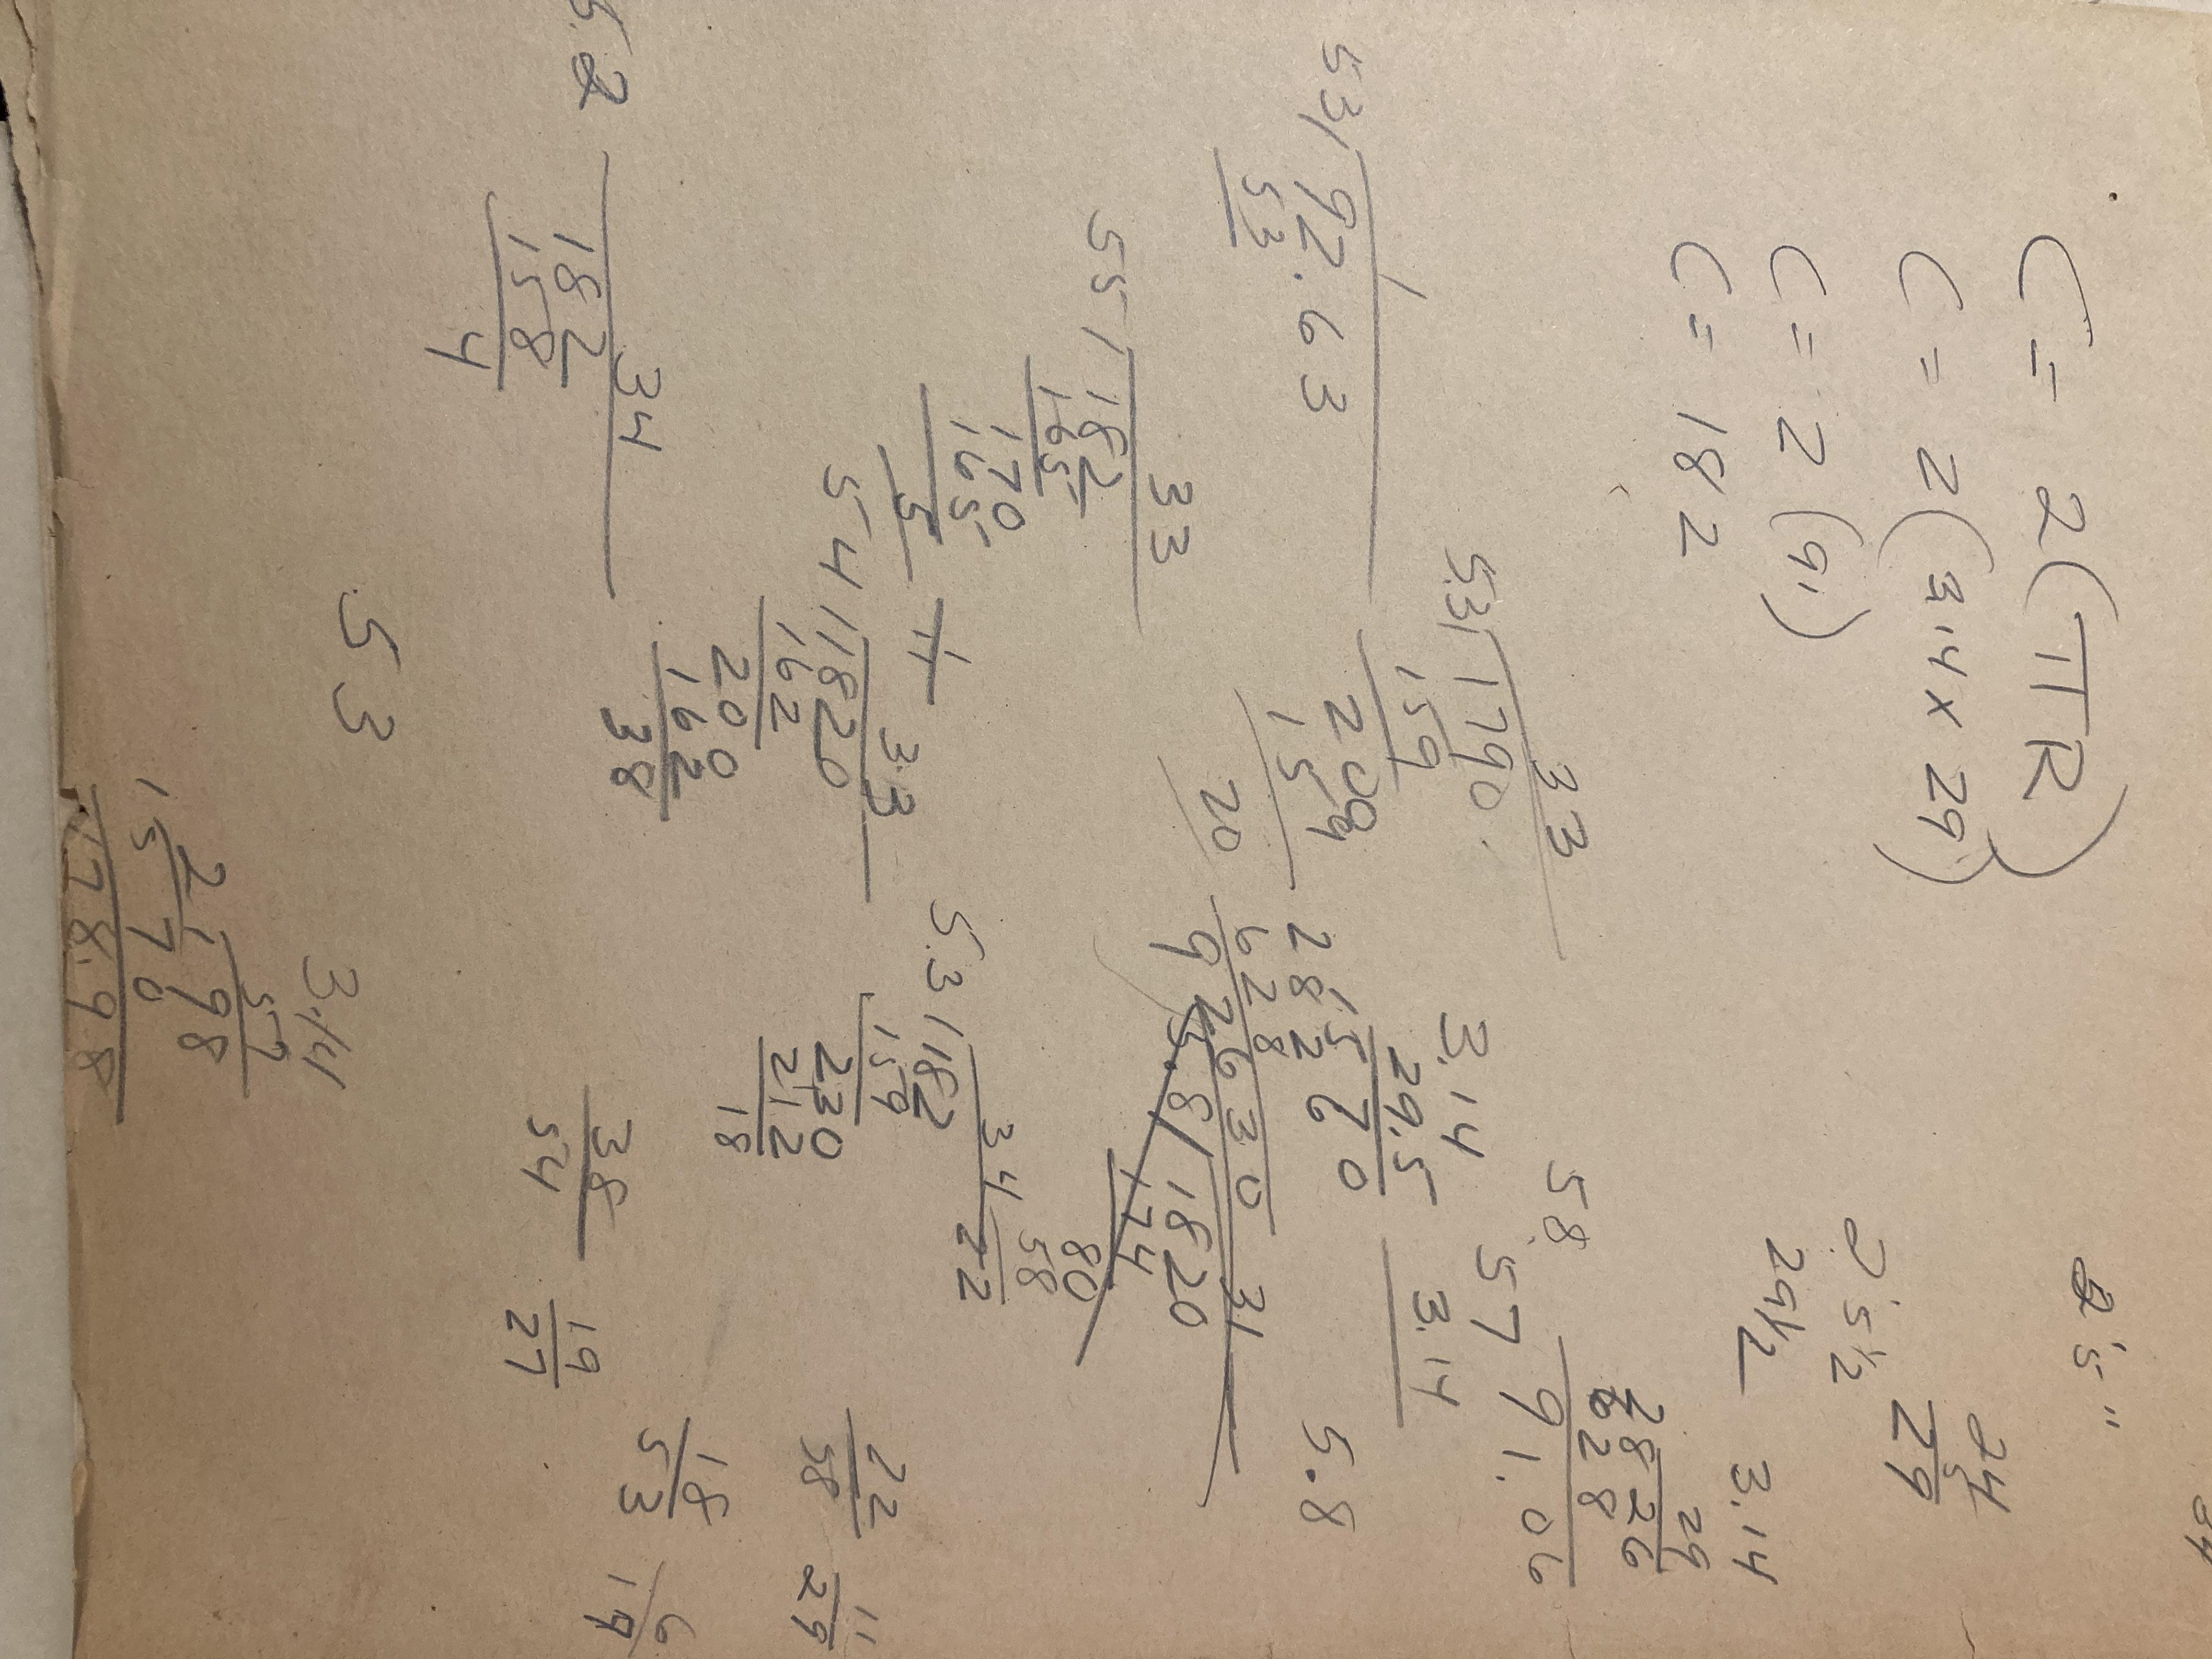 C = 2(πR)
C = 2(3.14 x 29)
C = 2(91)
C = 182
2'5"
24
29
2'5½
29½
3.14
29
2826
628
91.06
58
57
3.14
5.8
3.14
29.5
1570
2826
628
92630
33
53/1790.
159
200
159
20
53/92.63
53
33
55/182
165
170
165
5
31
5.8/1820
174
80
58
22
34
53/182
159
230
212
18
3.3
54/1820
162
200
162
38
22
58
11
29
18
53
6
19
38
54
19
27
34
5.2
182
158
4
53
3.14
57
2198
1570
178.98